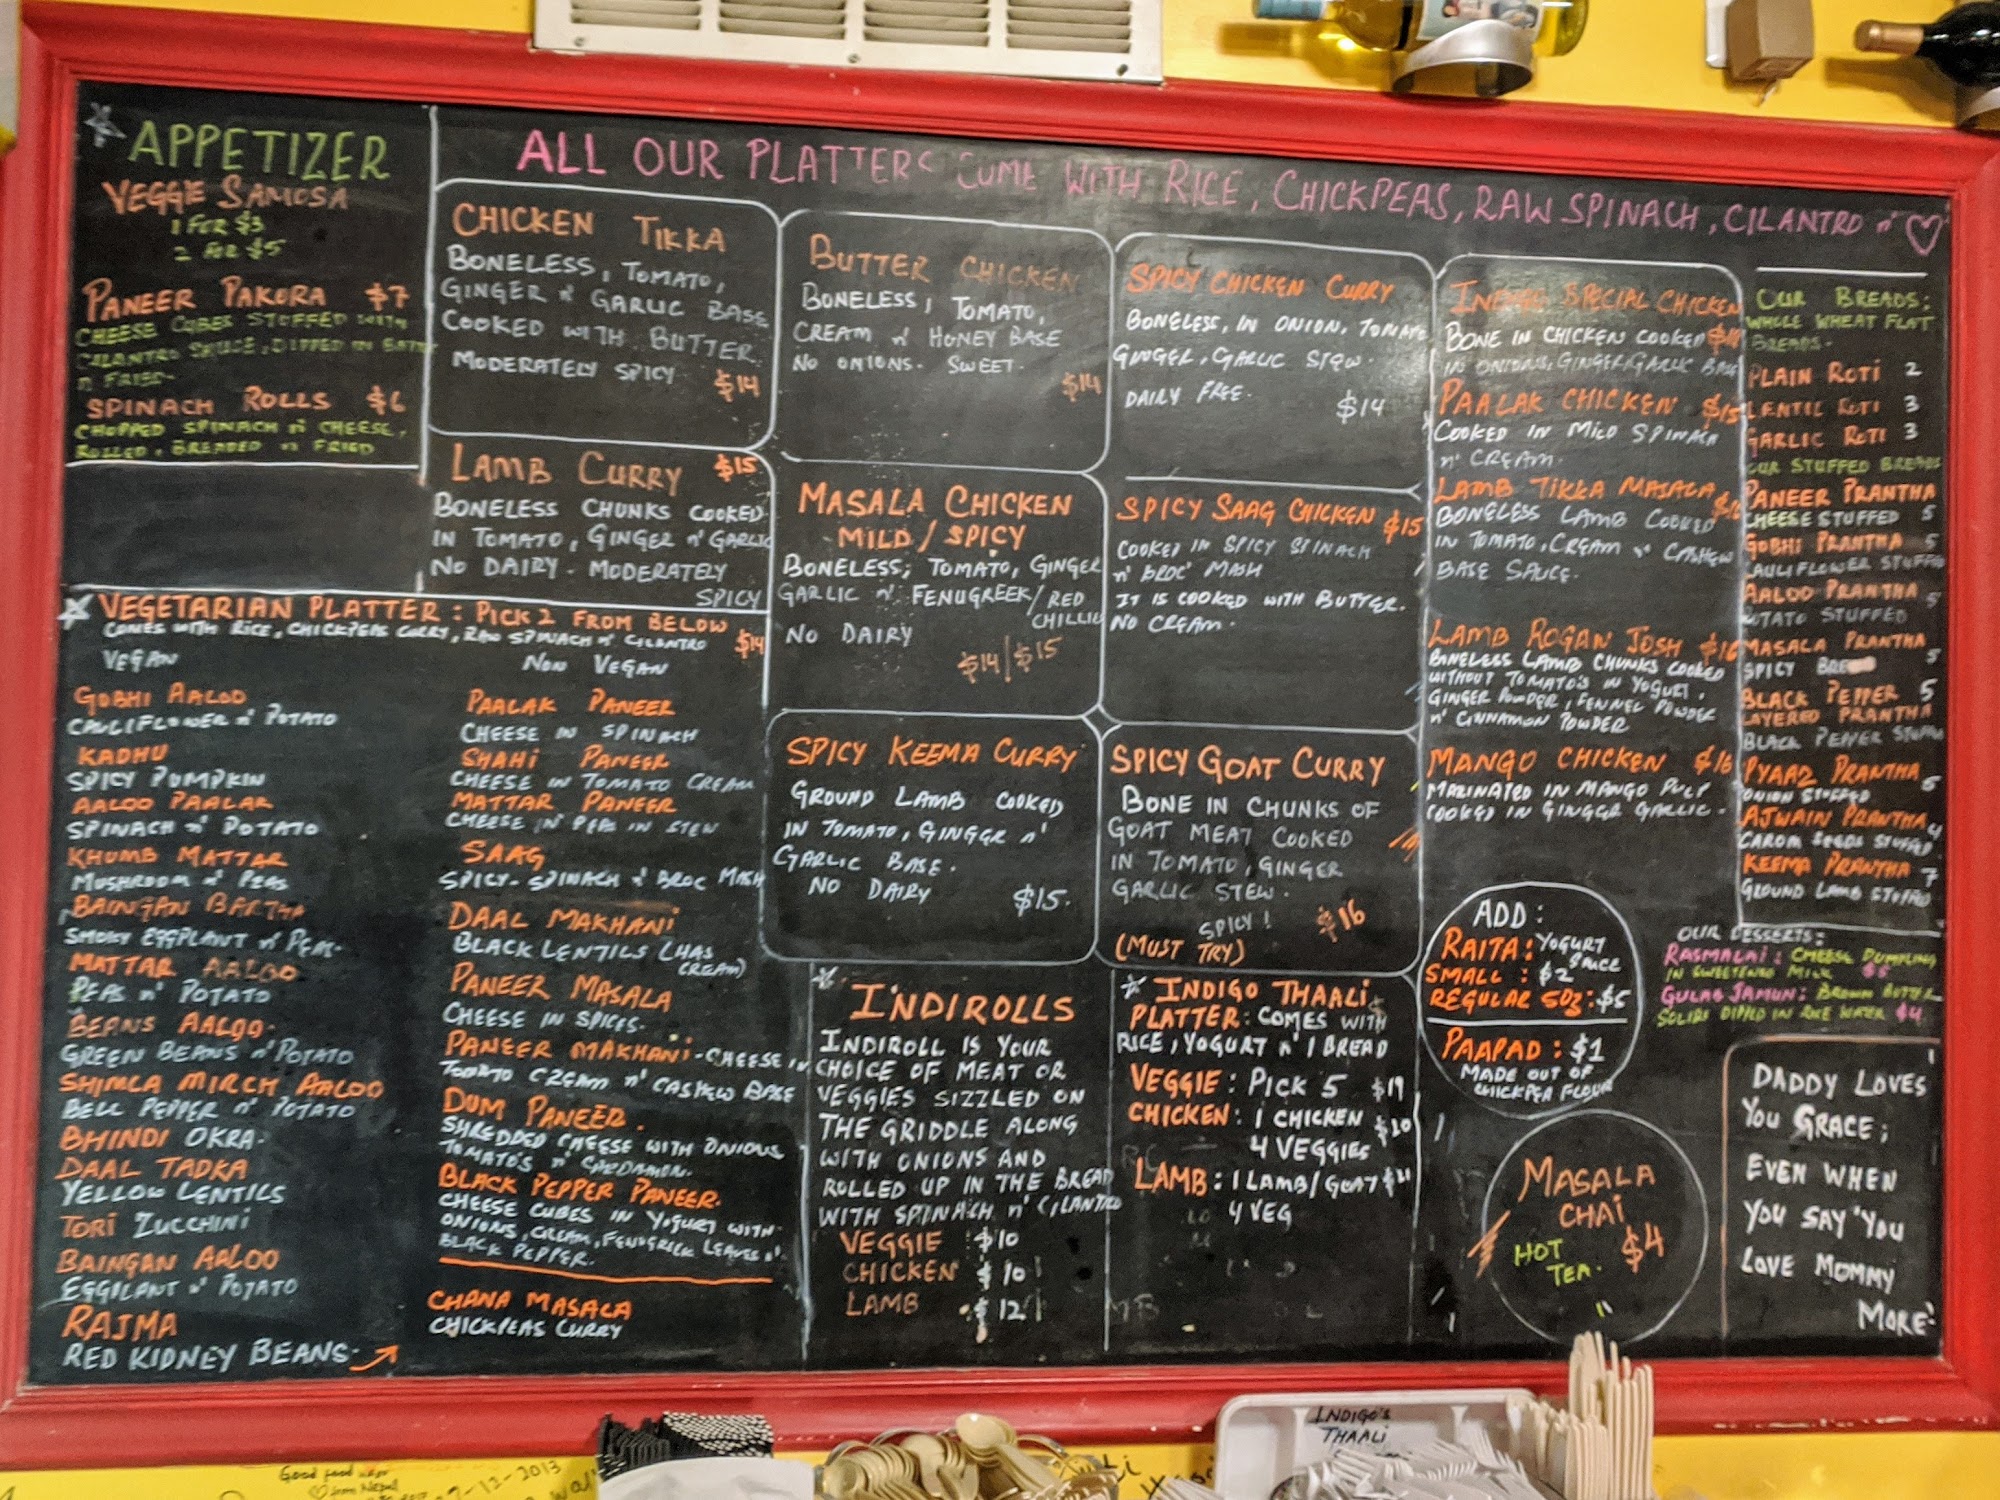 APPETIZER
VEGGIE SAMOSA
1 FOR $3
2 FOR $5
PANEER PAKORA $7
CHEESE CUBES STUFFED WITH
CILANTRO SAUCE, DIPPED IN
n' FRIED.
SPINACH ROLLS $6
CHOPPED SPINACH n' CHEESE,
ROLLED, BREADED n' FRIED
ALL OUR PLATTERS COME WITH RICE, CHICKPEAS, RAW SPINACH, CILANTRO n' ♡
CHICKEN TIKKA
BONELESS, TOMATO,
GINGER n' GARLIC BASE
COOKED WITH BUTTER.
MODERATELY SPICY. $14
LAMB CURRY $15
BONELESS CHUNKS COOKED
IN TOMATO, GINGER n' GARLIC
NO DAIRY. MODERATELY
SPICY
BUTTER CHICKEN
BONELESS, TOMATO,
CREAM n' HONEY BASE
NO ONIONS. SWEET.
$14
MASALA CHICKEN
MILD / SPICY
BONELESS, TOMATO, GINGER
GARLIC n' FENUGREEK / RED
CHILLIE
NO DAIRY
$14/$15
SPICY KEEMA CURRY
GROUND LAMB COOKED
IN TOMATO, GINGER n'
GARLIC BASE.
NO DAIRY $15.
SPICY CHICKEN CURRY
BONELESS, IN ONION, TOMATO
GINGER, GARLIC STEW.
DAIRY FREE. $14
SPICY SAAG CHICKEN $15
COOKED IN SPICY SPINACH
n' BROC' MASH
IT IS COOKED WITH BUTTER.
NO CREAM.
SPICY GOAT CURRY
BONE IN CHUNKS OF
GOAT MEAT COOKED
IN TOMATO, GINGER
GARLIC STEW.
SPICY!
(MUST TRY) $16
INDIGO SPECIAL CHICKEN
BONE IN CHICKEN COOKED
IN ONIONS, GINGER, GARLIC BASE
PAALAK CHICKEN $15
COOKED IN MILD SPINACH
n' CREAM.
LAMB TIKKA MASALA $16
BONELESS LAMB COOKED
IN TOMATO, CREAM n' CASHEW
BASE SAUCE.
LAMB ROGAN JOSH $16
BONELESS LAMB CHUNKS COOKED
WITHOUT TOMATO'S IN YOGURT,
GINGER POWDER, FENNEL POWDER
n' CINNAMON POWDER
MANGO CHICKEN $16
MARINATED IN MANGO PULP
COOKED IN GINGER GARLIC.
OUR BREADS:
WHOLE WHEAT FLAT
BREADS.
PLAIN ROTI 2
LENTIL ROTI 3
GARLIC ROTI 3
OUR STUFFED BREADS
PANEER PRANTHA
CHEESE STUFFED 5
GOBHI PRANTHA 5
CAULIFLOWER STUFFED
AALOO PRANTHA 5
POTATO STUFFED
MASALA PRANTHA 5
SPICY
BLACK PEPPER 5
LAYERED PRANTHA
BLACK PEPPER STUFFED
PYAAZ PRANTHA 5
ONION STUFFED
AJWAIN PRANTHA 4
CAROM SEEDS STUFFED
KEEMA PRANTHA 7
GROUND LAMB STUFFED
VEGETARIAN PLATTER: PICK 2 FROM BELOW
COMES WITH RICE, CHICKPEAS CURRY, RAW SPINACH n' CILANTRO $14
VEGAN
GOBHI AALOO
CAULIFLOWER n' POTATO
KADHU
SPICY PUMPKIN
AALOO PAALAK
SPINACH n' POTATO
KHUMB MATTAR
MUSHROOM n' PEAS
BAINGAN BARTHA
SMOKY EGGPLANT n' PEAS.
MATTAR AALOO
PEAS n' POTATO
BEANS AALOO.
GREEN BEANS n' POTATO
SHIMLA MIRCH AALOO
BELL PEPPER n' POTATO
BHINDI OKRA.
DAAL TADKA
YELLOW LENTILS
TORI ZUCCHINI
BAINGAN AALOO
EGGPLANT n' POTATO
RAJMA
RED KIDNEY BEANS.
NON VEGAN
PAALAK PANEER
CHEESE IN SPINACH
SHAHI PANEER
CHEESE IN TOMATO CREAM
MATTAR PANEER
CHEESE IN PEAS IN STEW
SAAG
SPICY-SPINACH n' BROC MASH
DAAL MAKHANI
BLACK LENTILS (HAS
CREAM)
PANEER MASALA
CHEESE IN SPICES.
PANEER MAKHANI - CHEESE IN
TOMATO CREAM n' CASHEW BASE
DUM PANEER.
SHREDDED CHEESE WITH ONIONS
TOMATO'S n' CARDAMON.
BLACK PEPPER PANEER.
CHEESE CUBES IN YOGURT WITH
ONIONS, CREAM, FENUGRICK LEAVES n'
BLACK PEPPER.
CHANA MASALA
CHICKPEAS CURRY
INDIROLLS
INDIROLL IS YOUR
CHOICE OF MEAT OR
VEGGIES SIZZLED ON
THE GRIDDLE ALONG
WITH ONIONS AND
ROLLED UP IN THE BREAD
WITH SPINACH n' CILANTRO
VEGGIE $10
CHICKEN $10
LAMB $12
INDIGO THAALI
PLATTER: COMES WITH
RICE, YOGURT n' 1 BREAD
VEGGIE: PICK 5 $19
CHICKEN: 1 CHICKEN $20
4 VEGGIES
LAMB: 1 LAMB/GOAT $21
4 VEG
ADD:
RAITA: YOGURT
SAUCE
SMALL: $2
REGULAR 5OZ: $5
PAAPAD: $1
MADE OUT OF
CHICKPEA FLOUR
OUR DESSERTS:
RASMALAI: CHEESE DUMPLING
IN SWEETENED MILK $5
GULAB JAMUN: BROWN BUTTER
SOLIDS DIPPED IN RICE WATER $4
MASALA
CHAI
HOT
TEA. $4
DADDY LOVES
YOU GRACE;
EVEN WHEN
YOU SAY 'YOU
LOVE MOMMY
MORE'
INDIGO'S
THAALI
Good food
from Nepal
-12-2013